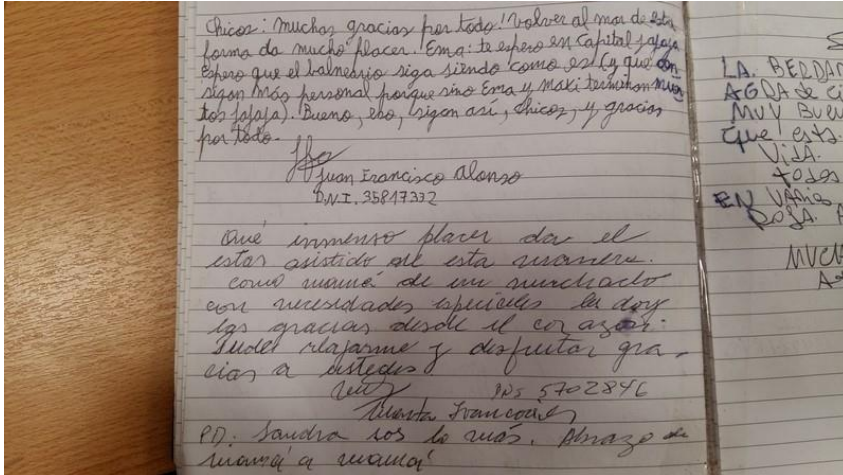 Chicos: muchas gracias por todo! Volver al mar de esta
forma da mucho placer. Ema: te espero en Capital jajaja
Espero que el balneario siga siendo como es (y que con-
sigan más personal porque sino Ema y Maxi terminan muer-
tos jajaja). Bueno, eso, sigan así, chicos, y gracias
por todo.
Juan Francisco Alonso
D.N.I. 35817332
Qué inmenso placer da el
estar asistido de esta manera.
como mamá de un muchacho
con necesidades especiales les doy
las gracias desde el corazón.
Pude relajarme y disfrutar gra-
cias a ustedes
5702846
PD. Sandra sos lo más. Abrazo de
mamá a mamá
LA.
AGUA de
MUY
que esta.
VIDA.
todos
EN VARIOS
ROSA.